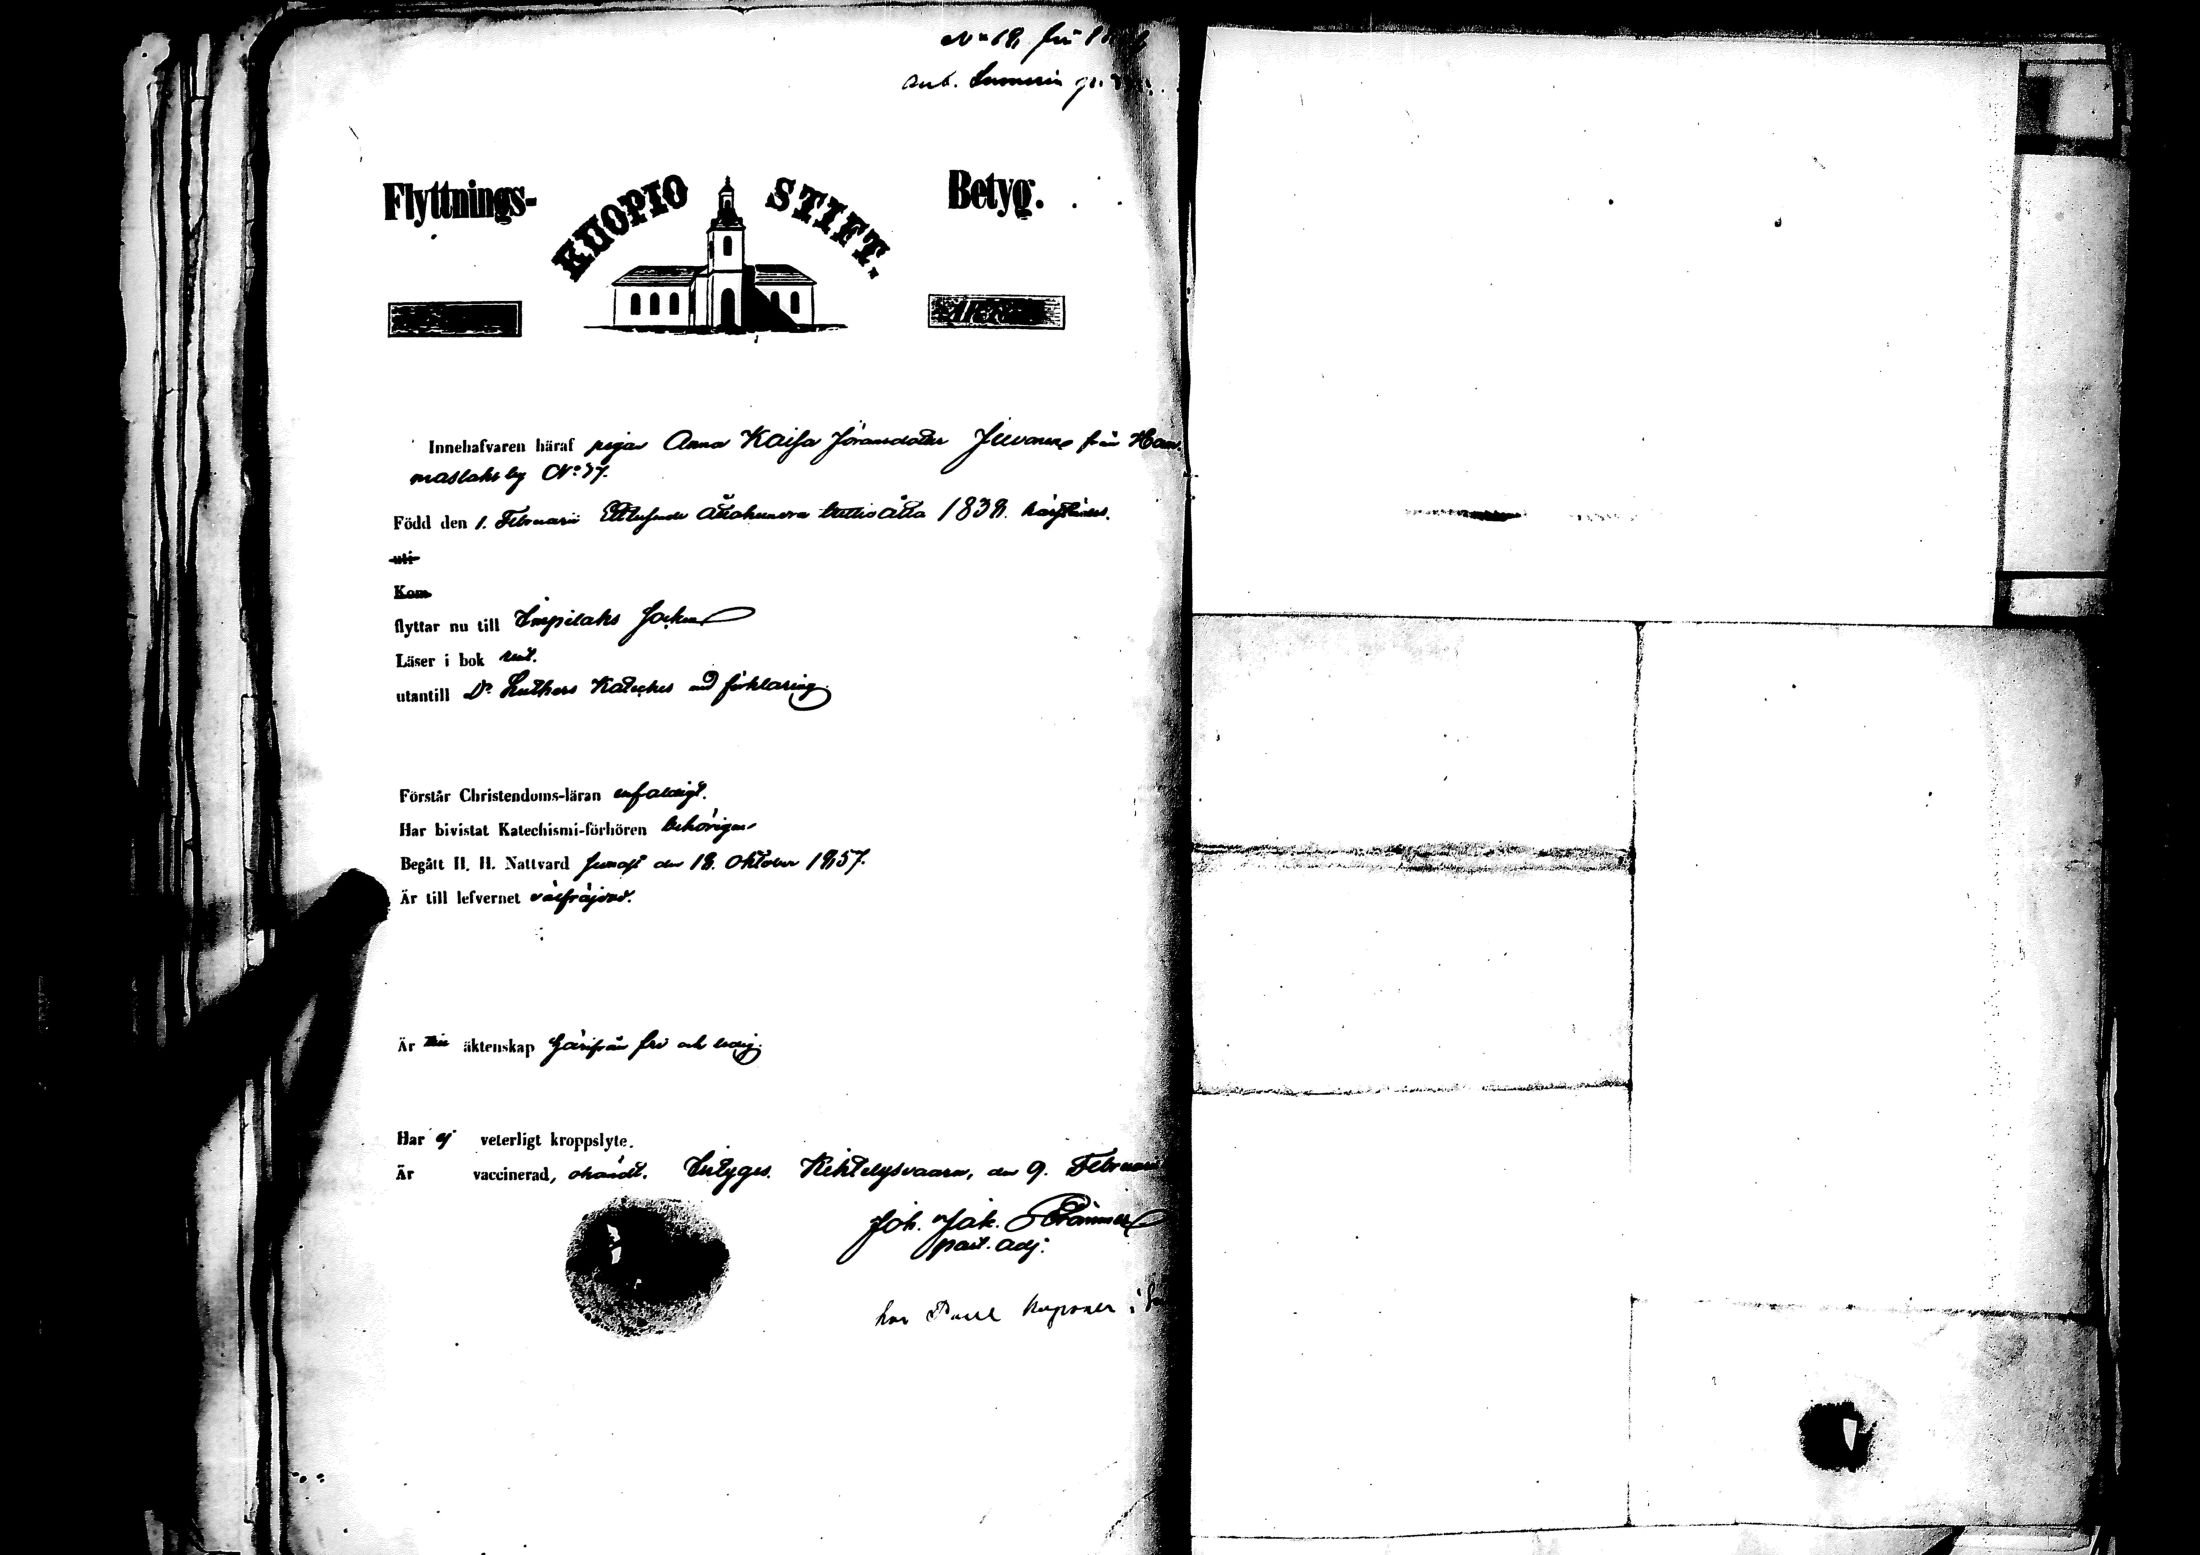 No 18, för
anb.
Flyttnings- KUOPIO STIFT. Betyg.
Innehafvaren häraf pigan Anna Kaisa Jöransdotter från Ham-
maslaks by No 37.
Född den 1. Februarii Ettusende Åttahundra trettioåtta 1838. härstädes.
uti
Kom
flyttar nu till Impilaks Socken
Läser i bok rent.
utantill Dr Luthers Kateches med förklaring.
Förstår Christendoms-läran enfaldigt.
Har bivistat Katechismi-förhören behörigen
Begått H. H. Nattvard senast den 18. Oktober 1857.
Är till lefvernet välfräjdad.
Är till äktenskap härifrån fri och ledig.
Har ej veterligt kroppslyte.
Är vaccinerad, okändt. Intygas. Kihtelysvaara, den 9. Februarii
Joh. Jak.
past. adj.
hos Paul i